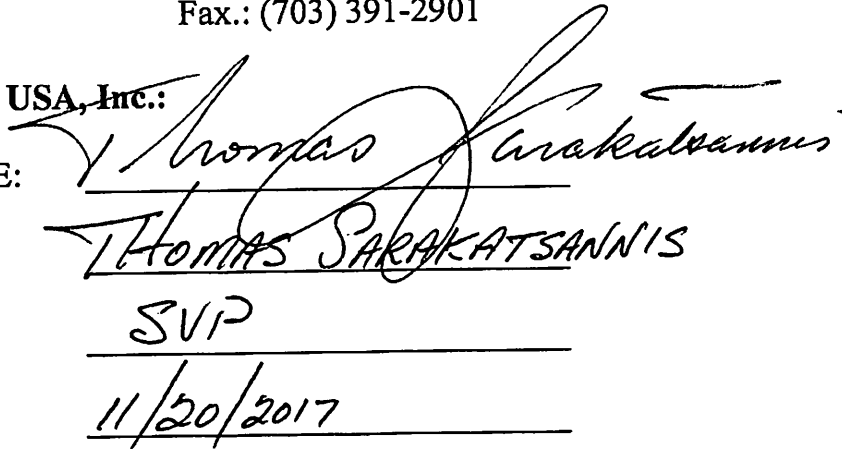 Fax.: (703) 391-2901
USA, Inc.:
E: Thomas Sarakatsannis
THOMAS SARAKATSANNIS
SVP
11/20/2017